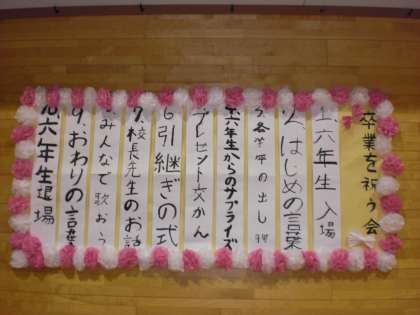 卒業を祝う会
1.六年生 入場
2.はじめの言葉
3.各学年の出し物
4.六年生からのサプライズ
5.プレゼント交かん
6.引継ぎの式
7.校長先生のお話
8.みんなで歌おう
9.おわりの言葉
10.六年生退場